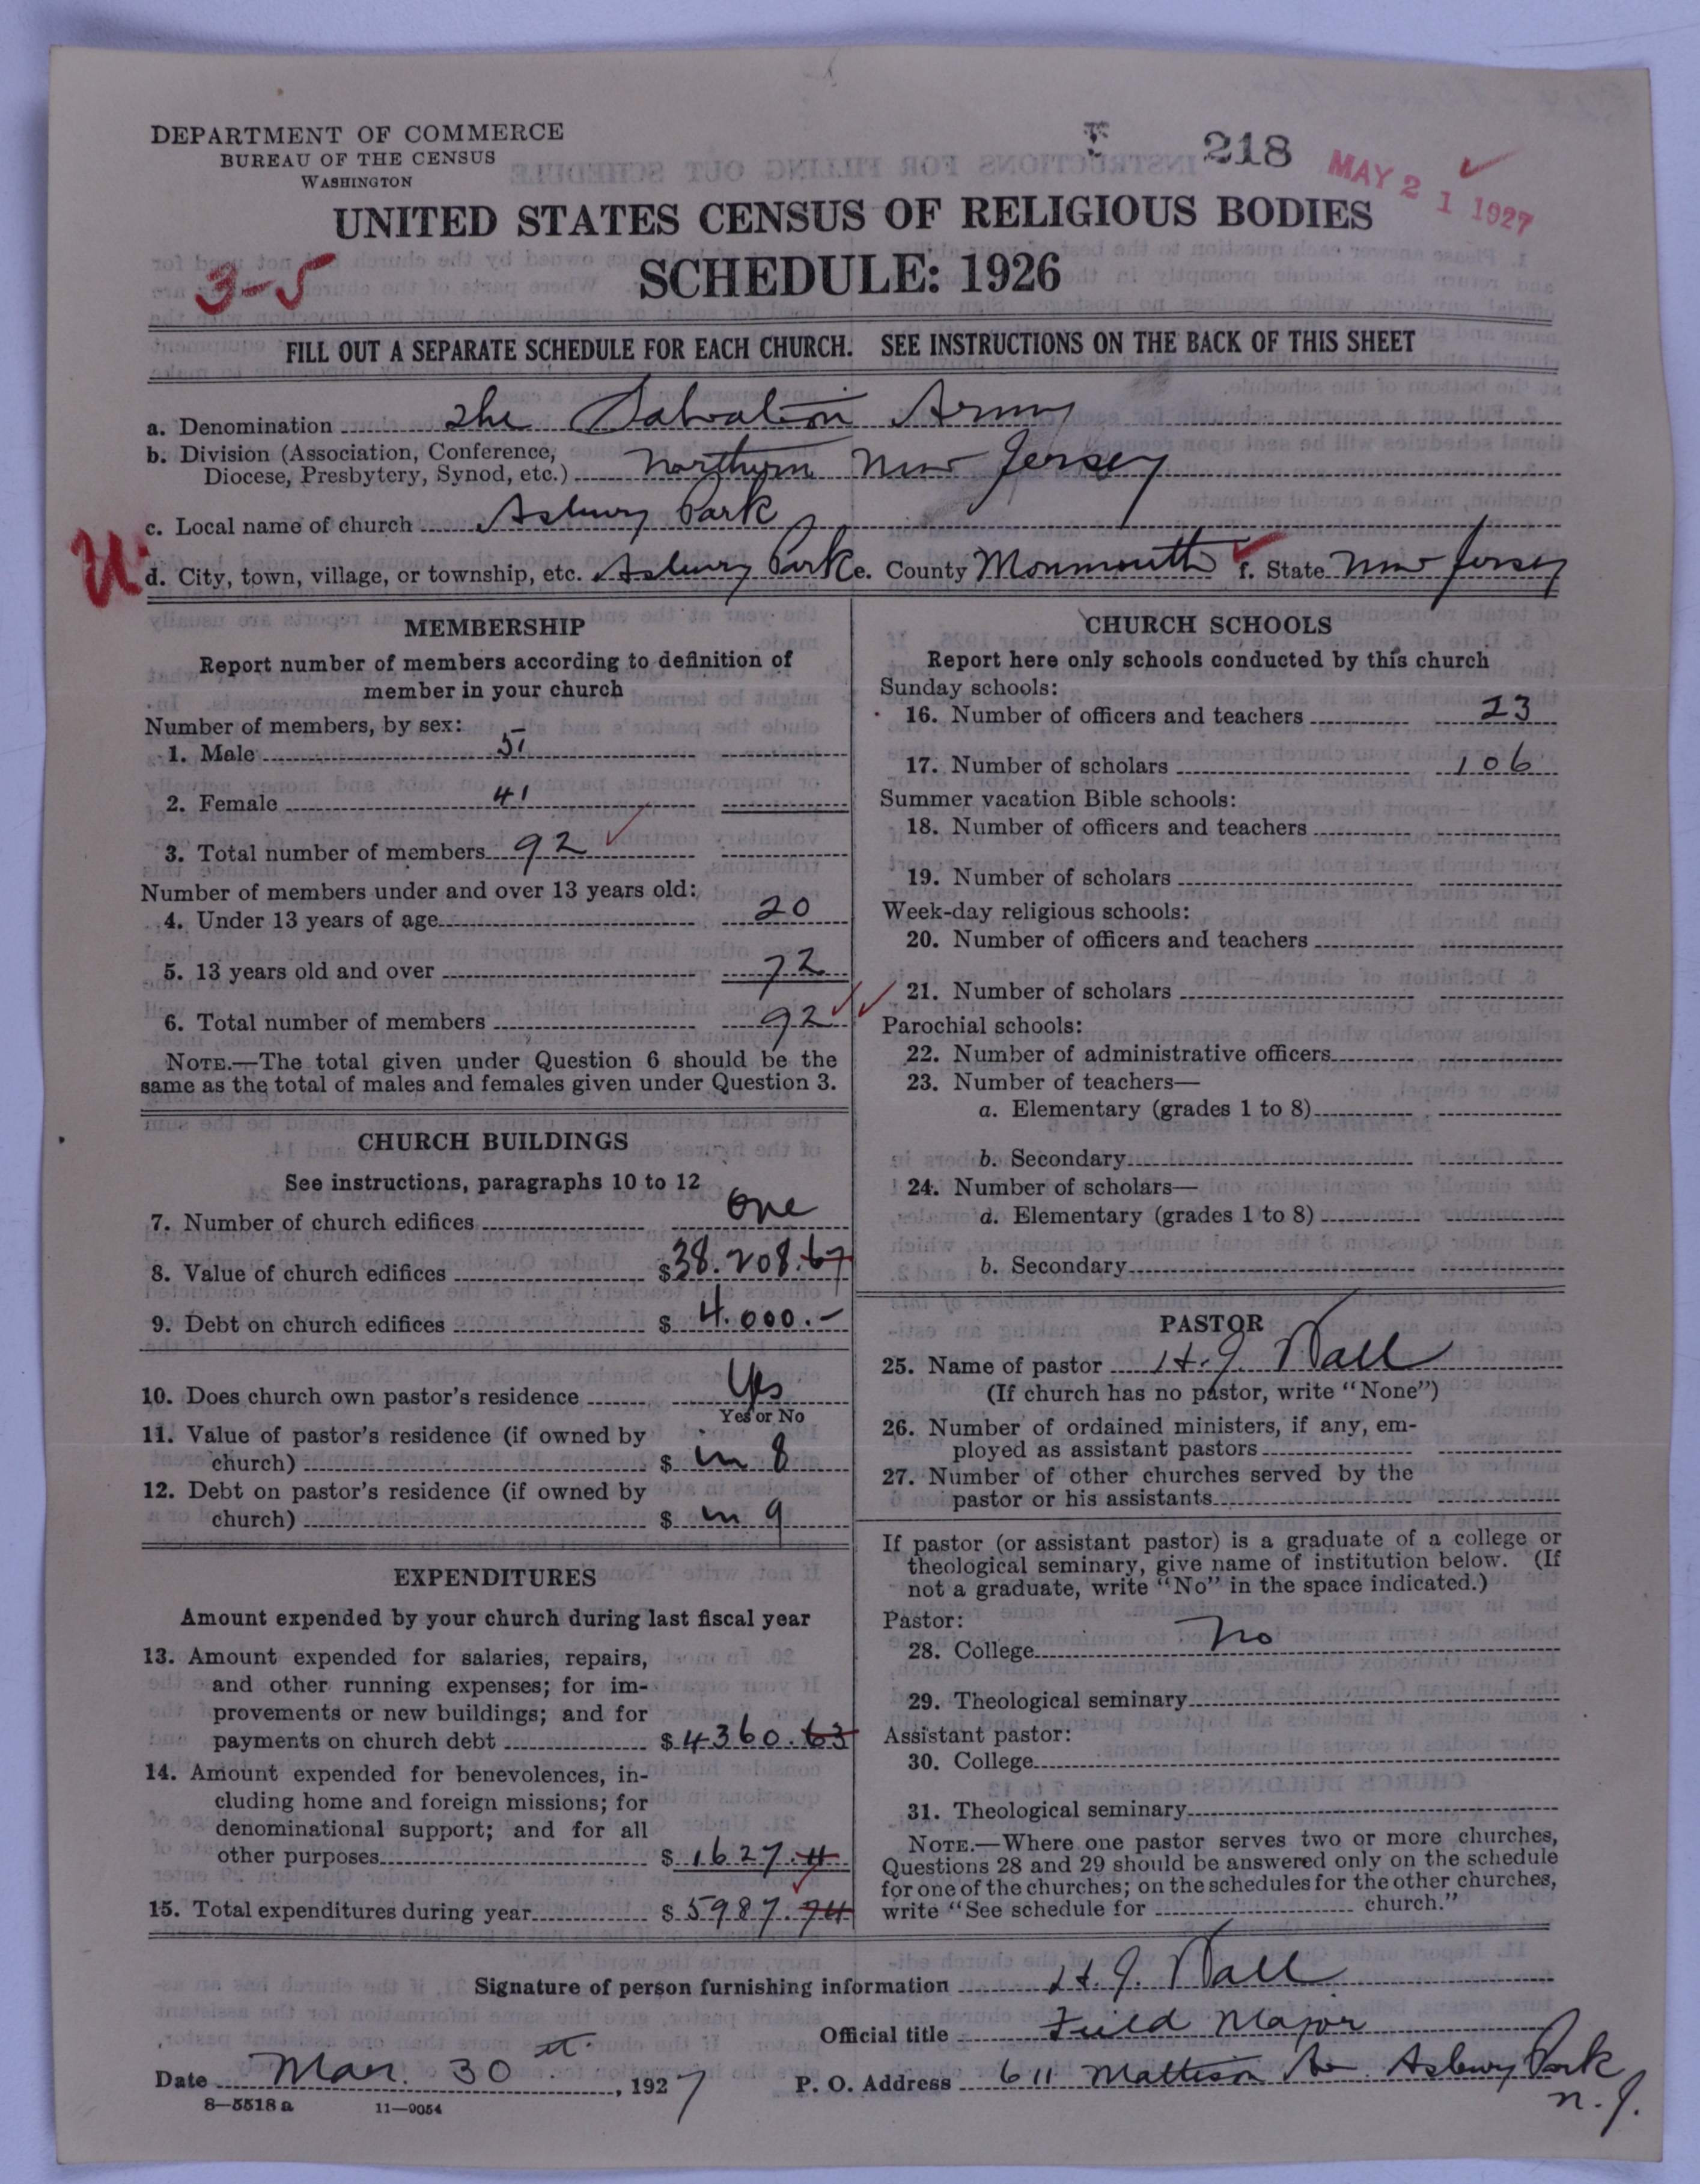 DEPARTMENT OF COMMERCE
BUREAU OF THE CENSUS
WASHINGTON
218
MAY 21 1927
UNITED STATES CENSUS OF RELIGIOUS BODIES
3-5
SCHEDULE: 1926
FILL OUT A SEPARATE SCHEDULE FOR EACH CHURCH. SEE INSTRUCTIONS ON THE BACK OF THIS SHEET
a. Denomination The Salvation Army
b. Division (Association, Conference,
Diocese, Presbytery, Synod, etc.) Northern New Jersey
c. Local name of church Asbury Park
U d. City, town, village, or township, etc. Asbury Park e. County Monmouth f. State New Jersey
MEMBERSHIP
Report number of members according to definition of
member in your church
Number of members, by sex:
1. Male 51
2. Female 41
3. Total number of members 92
Number of members under and over 13 years old:
4. Under 13 years of age 20
5. 13 years old and over 72
6. Total number of members 92
NOTE.—The total given under Question 6 should be the
same as the total of males and females given under Question 3.
CHURCH BUILDINGS
See instructions, paragraphs 10 to 12
7. Number of church edifices One
8. Value of church edifices $38.208.67
9. Debt on church edifices $ 4.000.-
10. Does church own pastor's residence Yes
Yes or No
11. Value of pastor's residence (if owned by
church) $ in 8
12. Debt on pastor's residence (if owned by
church) $ in 9
EXPENDITURES
Amount expended by your church during last fiscal year
13. Amount expended for salaries, repairs,
and other running expenses; for im-
provements or new buildings; and for
payments on church debt $ 4360.63
14. Amount expended for benevolences, in-
cluding home and foreign missions; for
denominational support; and for all
other purposes $ 1627.11
15. Total expenditures during year $ 5987.74
CHURCH SCHOOLS
Report here only schools conducted by this church
Sunday schools:
16. Number of officers and teachers 23
17. Number of scholars 106
Summer vacation Bible schools:
18. Number of officers and teachers
19. Number of scholars
Week-day religious schools:
20. Number of officers and teachers
21. Number of scholars
Parochial schools:
22. Number of administrative officers
23. Number of teachers—
a. Elementary (grades 1 to 8)
b. Secondary
24. Number of scholars—
a. Elementary (grades 1 to 8)
b. Secondary
PASTOR
25. Name of pastor H. J. Wall
(If church has no pastor, write "None")
26. Number of ordained ministers, if any, em-
ployed as assistant pastors
27. Number of other churches served by the
pastor or his assistants
If pastor (or assistant pastor) is a graduate of a college or
theological seminary, give name of institution below. (If
not a graduate, write "No" in the space indicated.)
Pastor:
28. College No
29. Theological seminary
Assistant pastor:
30. College
31. Theological seminary
NOTE.—Where one pastor serves two or more churches,
Questions 28 and 29 should be answered only on the schedule
for one of the churches; on the schedules for the other churches,
write "See schedule for church."
Signature of person furnishing information H. J. Wall
Official title Field Major
Date Mar. 30 th, 1927 P. O. Address 611 Mattison Av Asbury Park
N. J.
8—5518 a 11—9054